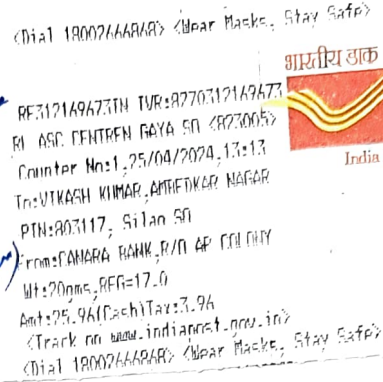 <Dial 18002666868> <Wear Masks, Stay Safe>
भारतीय डाक
RF312169673IN IVR:8270312169673
RL ASC CENTREN GAYA SO <823005>
India
Counter No:1,25/04/2024,13:13
To:VIKASH KUMAR,AMBEDKAR NAGAR
PIN:803117, Silao SO
From:CANARA BANK,B/O AP COLONY
Wt:20gms,REG=17.0
Amt:25.96(Cash)Tax:3.96
<Track on www.indiapost.gov.in>
<Dial 18002666868> <Wear Masks, Stay Safe>